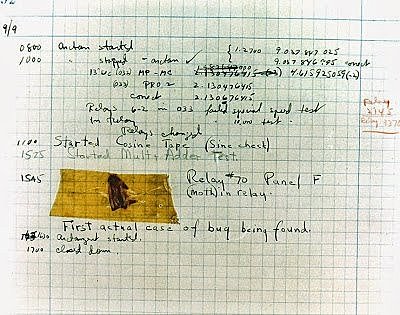 9/9
0800 Antan started { 1.2700 9.037 847 025
1000 " stopped - antan ✓ 9.037 846 995 correct
13" uc (032) MP - MC 2.130476415 (-3) 4.615925059(-2)
(033) PRO 2 2.130476415
correct 2.130676415
Relays 6-2 in 033 failed special speed test
in Relay 10,000 test.
Relays changed
1100 Started Cosine Tape (Sine check)
1525 Started Multi Adder Test.
1545 Relay #70 Panel F
(moth) in relay.
First actual case of bug being found.
1630 antangent started.
1700 closed down.
Relay
2145
Relay 3370